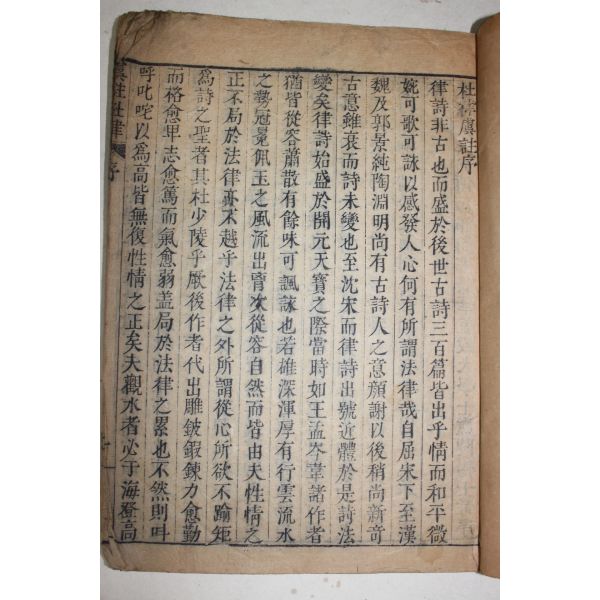 杜律虞註序
律詩非古也而盛於後世古詩三百篇皆出乎情而和平微
婉可歌可詠以感發人心何有所謂法律哉自屈宋下至漢
魏及郭景純陶淵明尚有古詩人之意顔謝以後稍尚新奇
古意雖衰而詩未變也至沈宋而律詩出號近體於是詩法
變矣律詩始盛於開元天寶之際當時如王孟岑韋諸作者
猶皆從容蕭散有餘味可諷詠也若雄深渾厚有行雲流水
之勢冠冕佩玉之風流出胷次從容自然而皆由夫性情之
正不局於法律亦不越乎法律之外所謂從心所欲不踰矩
爲詩之聖者其杜少陵乎厥後作者代出雕鈹鍛鍊力愈勤
而格愈卑志愈篤而氣愈弱盖局於法律之累也不然則叫
呼叱咤以爲高皆無復性情之正矣夫觀水者必于海登高
虞註杜律 序